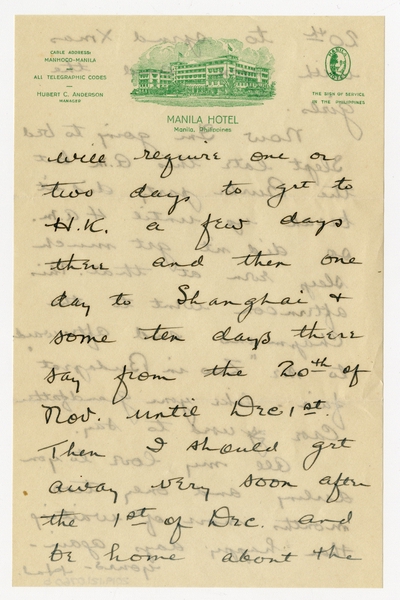 CABLE ADDRESS:
MANHOCO-MANILA
ALL TELEGRAPHIC CODES
HUBERT C. ANDERSON
MANAGER
MANILA HOTEL
Manila, Philippines
THE SIGN OF SERVICE
IN THE PHILIPPINES
will require one or
two days to get to
H.K. a few days
there and then one
day to Shanghai +
some ten days there
say from the 20th of
Nov. until Dec 1st.
Then I should get
away very soon after
the 1st of Dec. and
be home about the